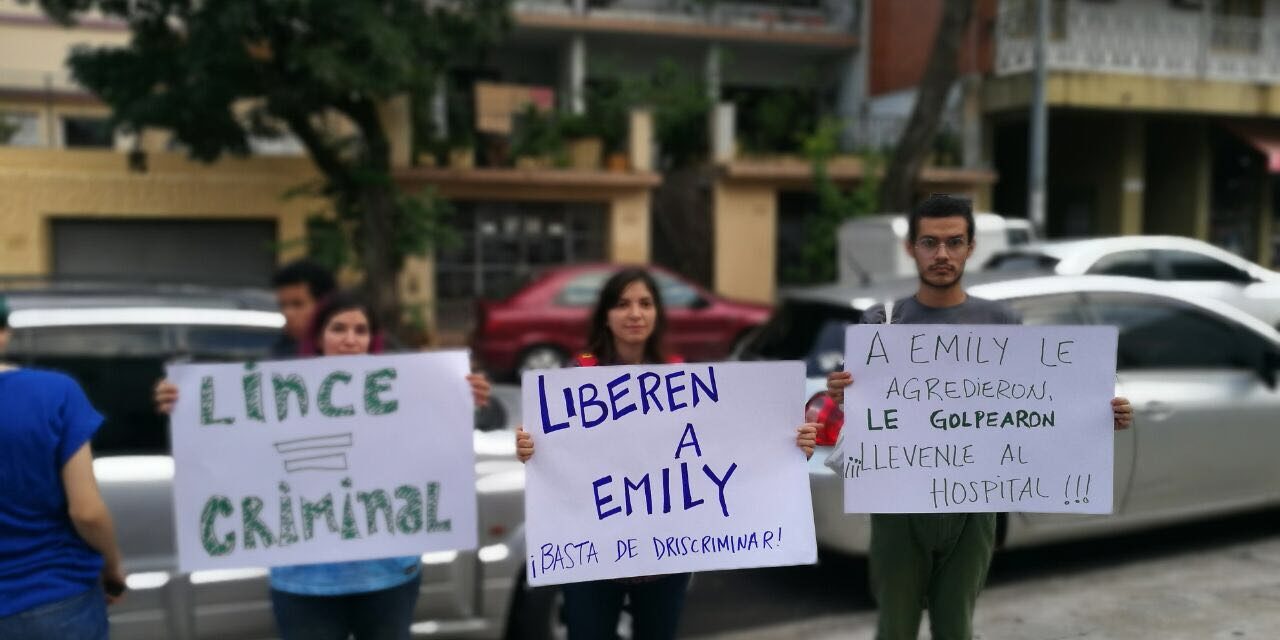 LINCE
=
CRIMINAL
LIBEREN
A
EMILY
¡BASTA DE DRISCRIMINAR!
A EMILY LE
AGREDIERON,
LE GOLPEARON
¡¡¡LLEVENLE AL
HOSPITAL!!!